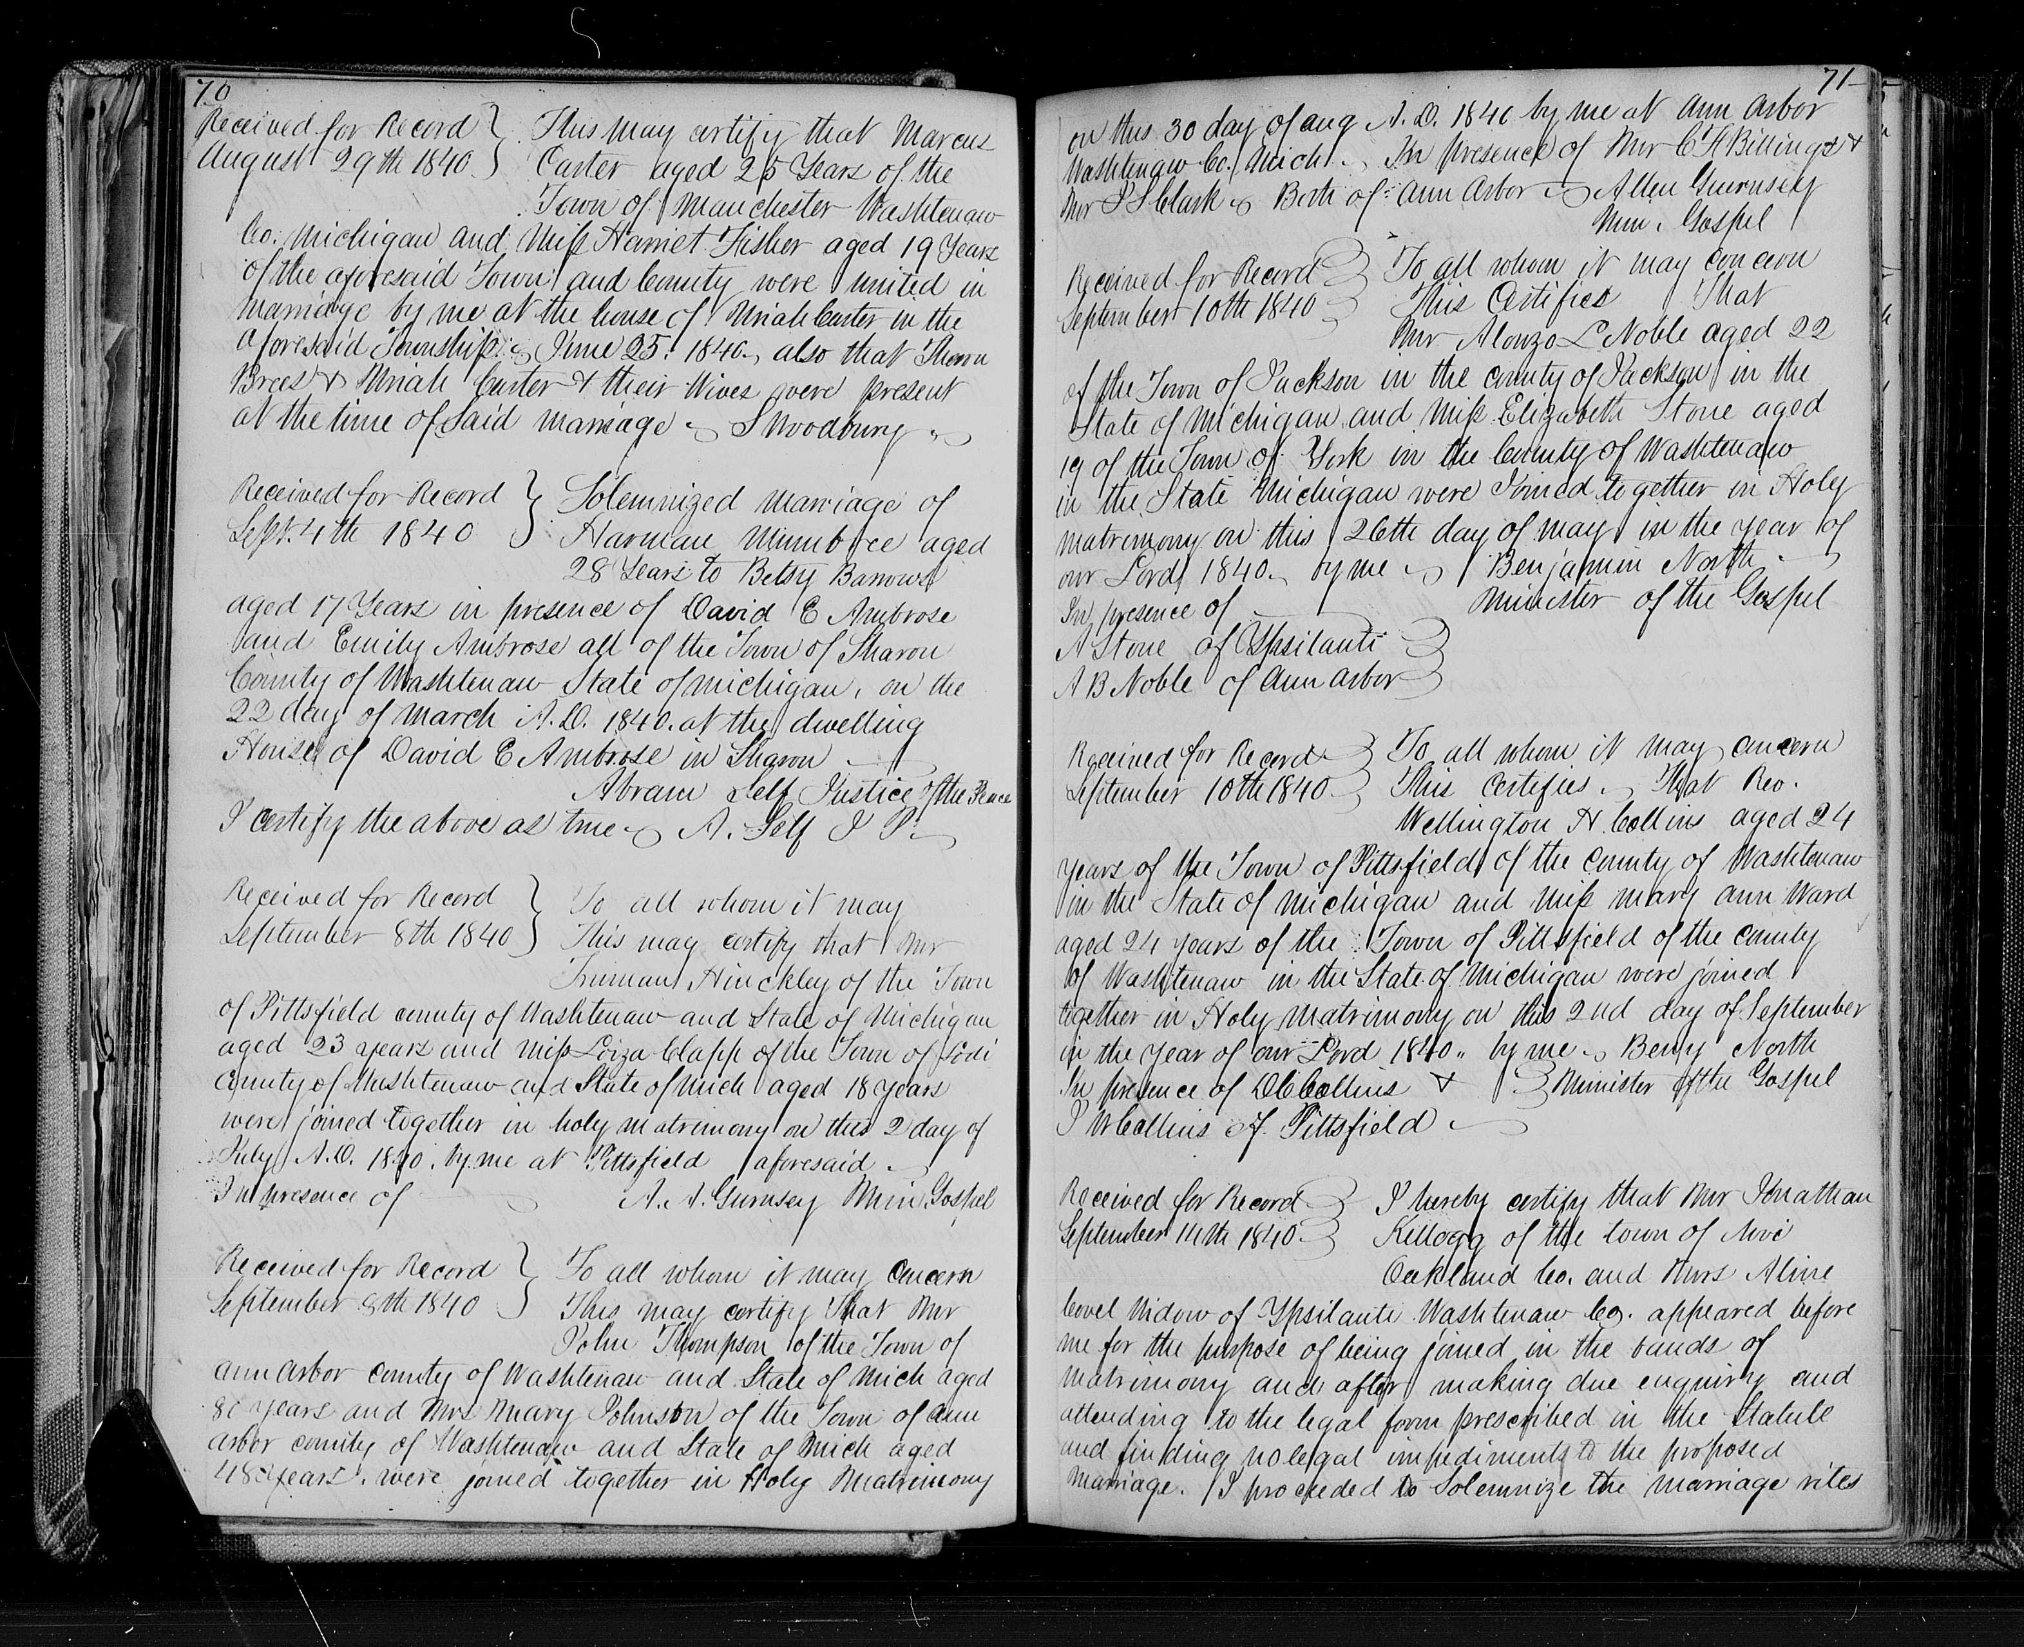 70
Received for Record } This may certify that Marcus
August 29th 1840 } Carter aged 25 Years of the
Town of Manchester Washtenaw
Co. Michigan and Miss Harriet Fisher aged 19 Years
of the aforesaid Town and County were united in
marriage by me at the house of Uriah Carter in the
aforesaid Township June 25. 1840, also that
Brees & Uriah Carter & their Wives were present
at the time of Said marriage S Woodbury
Received for Record } Solemnized marriage of
Sept. 4th 1840 } Harman aged
28 Years to Betsy Barrows
aged 17 Years in presence of David E Ambrose
and Emily Ambrose all of the Town of Sharon
County of Washtenaw State of Michigan, on the
22 day of March A.D. 1840. at the dwelling
House of David E Ambrose in Sharon
Abram Self Justice of the Peace
I certify the above as true A. Self J P.
Received for Record } To all whom it may
September 8th 1840 } This may certify that Mr
Truman Hinckley of the Town
of Pittsfield county of Washtenaw and State of Michigan
aged 23 years and Miss Loiza Clapp of the Town of Lodi
County of Washtenaw and State of Mich aged 18 years
were joined together in holy matrimony on this 2 day of
July A.D. 1840. by me at Pittsfield aforesaid
In presence of A. A. Gurnsey Min. Gospel
Received for Record } To all whom it may Concern
September 8th 1840 } This may certify that Mr
John Thompson of the Town of
Ann Arbor County of Washtenaw and State of Mich aged
years and Mrs Mary Johnston of the Town of Ann
Arbor county of Washtenaw and State of Mich aged
48 years, were joined together in Holy Matrimony
71
on this 30 day of Aug A.D. 1840 by me at Ann Arbor
Washtenaw Co. Mich. In presence of Mr C H Billings &
Mr J S Clark Both of Ann Arbor Allen Guernsey
Min. Gospel
Received for Record } To all whom it may concern
September 10th 1840 } This Certifies That
Mr Alonzo L Noble aged 22
of the Town of Jackson in the county of Jackson in the
State of Michigan and Miss Elizabeth Stone aged
19 of the Town of York in the County of Washtenaw
in the State Michigan were Joined together in Holy
matrimony on this 26th day of may in the year of
our Lord 1840. by me Benjamin North
In presence of Minister of the Gospel
A Stone of Ypsilanti
A B Noble of Ann Arbor
Received for Record } To all whom it may concern
September 10th 1840 } This Certifies That Rev.
Wellington H Collins aged 24
years of the Town of Pittsfield of the county of Washtenaw
in the State of Michigan and Miss Mary Ann Ward
aged 24 years of the Town of Pittsfield of the county
of Washtenaw in the State of Michigan were joined
together in Holy Matrimony on this 2nd day of September
in the year of our Lord 1840 by me Benj North
In presence of D C Collins & } Minister of the Gospel
J W Collins of Pittsfield
Received for Record } I hereby certify that Mr Jonathan
September 14th 1840 } Kellogg of the town of Novi
Oakland Co. and Mrs Aline
Covel Widow of Ypsilanti Washtenaw Co. appeared before
me for the purpose of being joined in the bands of
Matrimony and after making due enquiry and
attending to the legal form prescribed in the Statute
and finding no legal impediments to the proposed
marriage. I proceeded to Solemnize the marriage rites